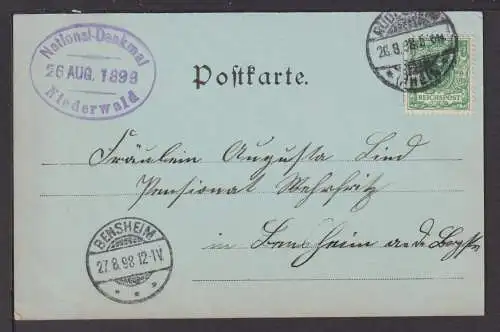 National-Denkmal
26 AUG. 1898
Niederwald
Postkarte.
26.8.98.
REICHSPOST
Fräulein Augusta Lind
Pensionat Wehrfritz
in Bensheim a. d. Bergstr
BENSHEIM
27.8.98.12-1V.